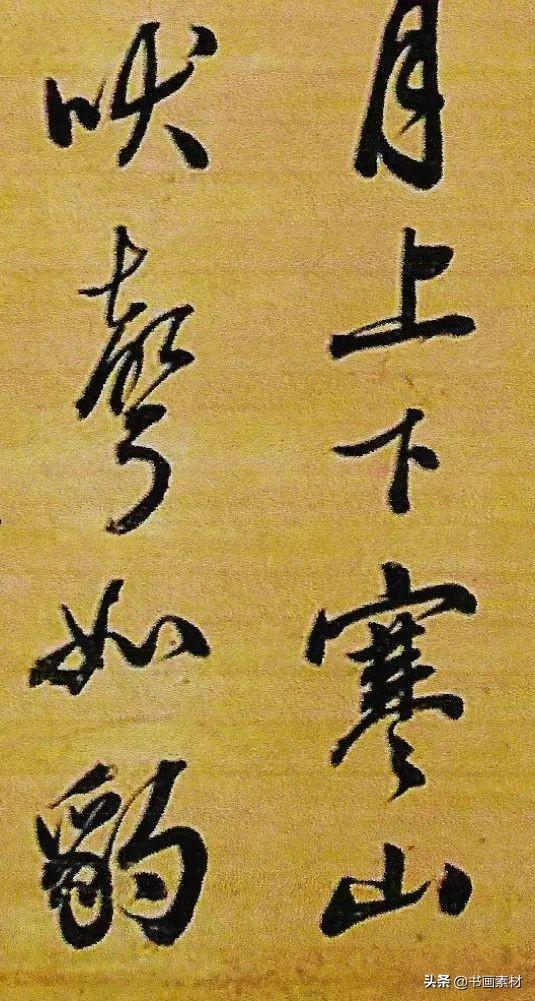 月上下寒山
吠聲如豹
头条 @书画素材